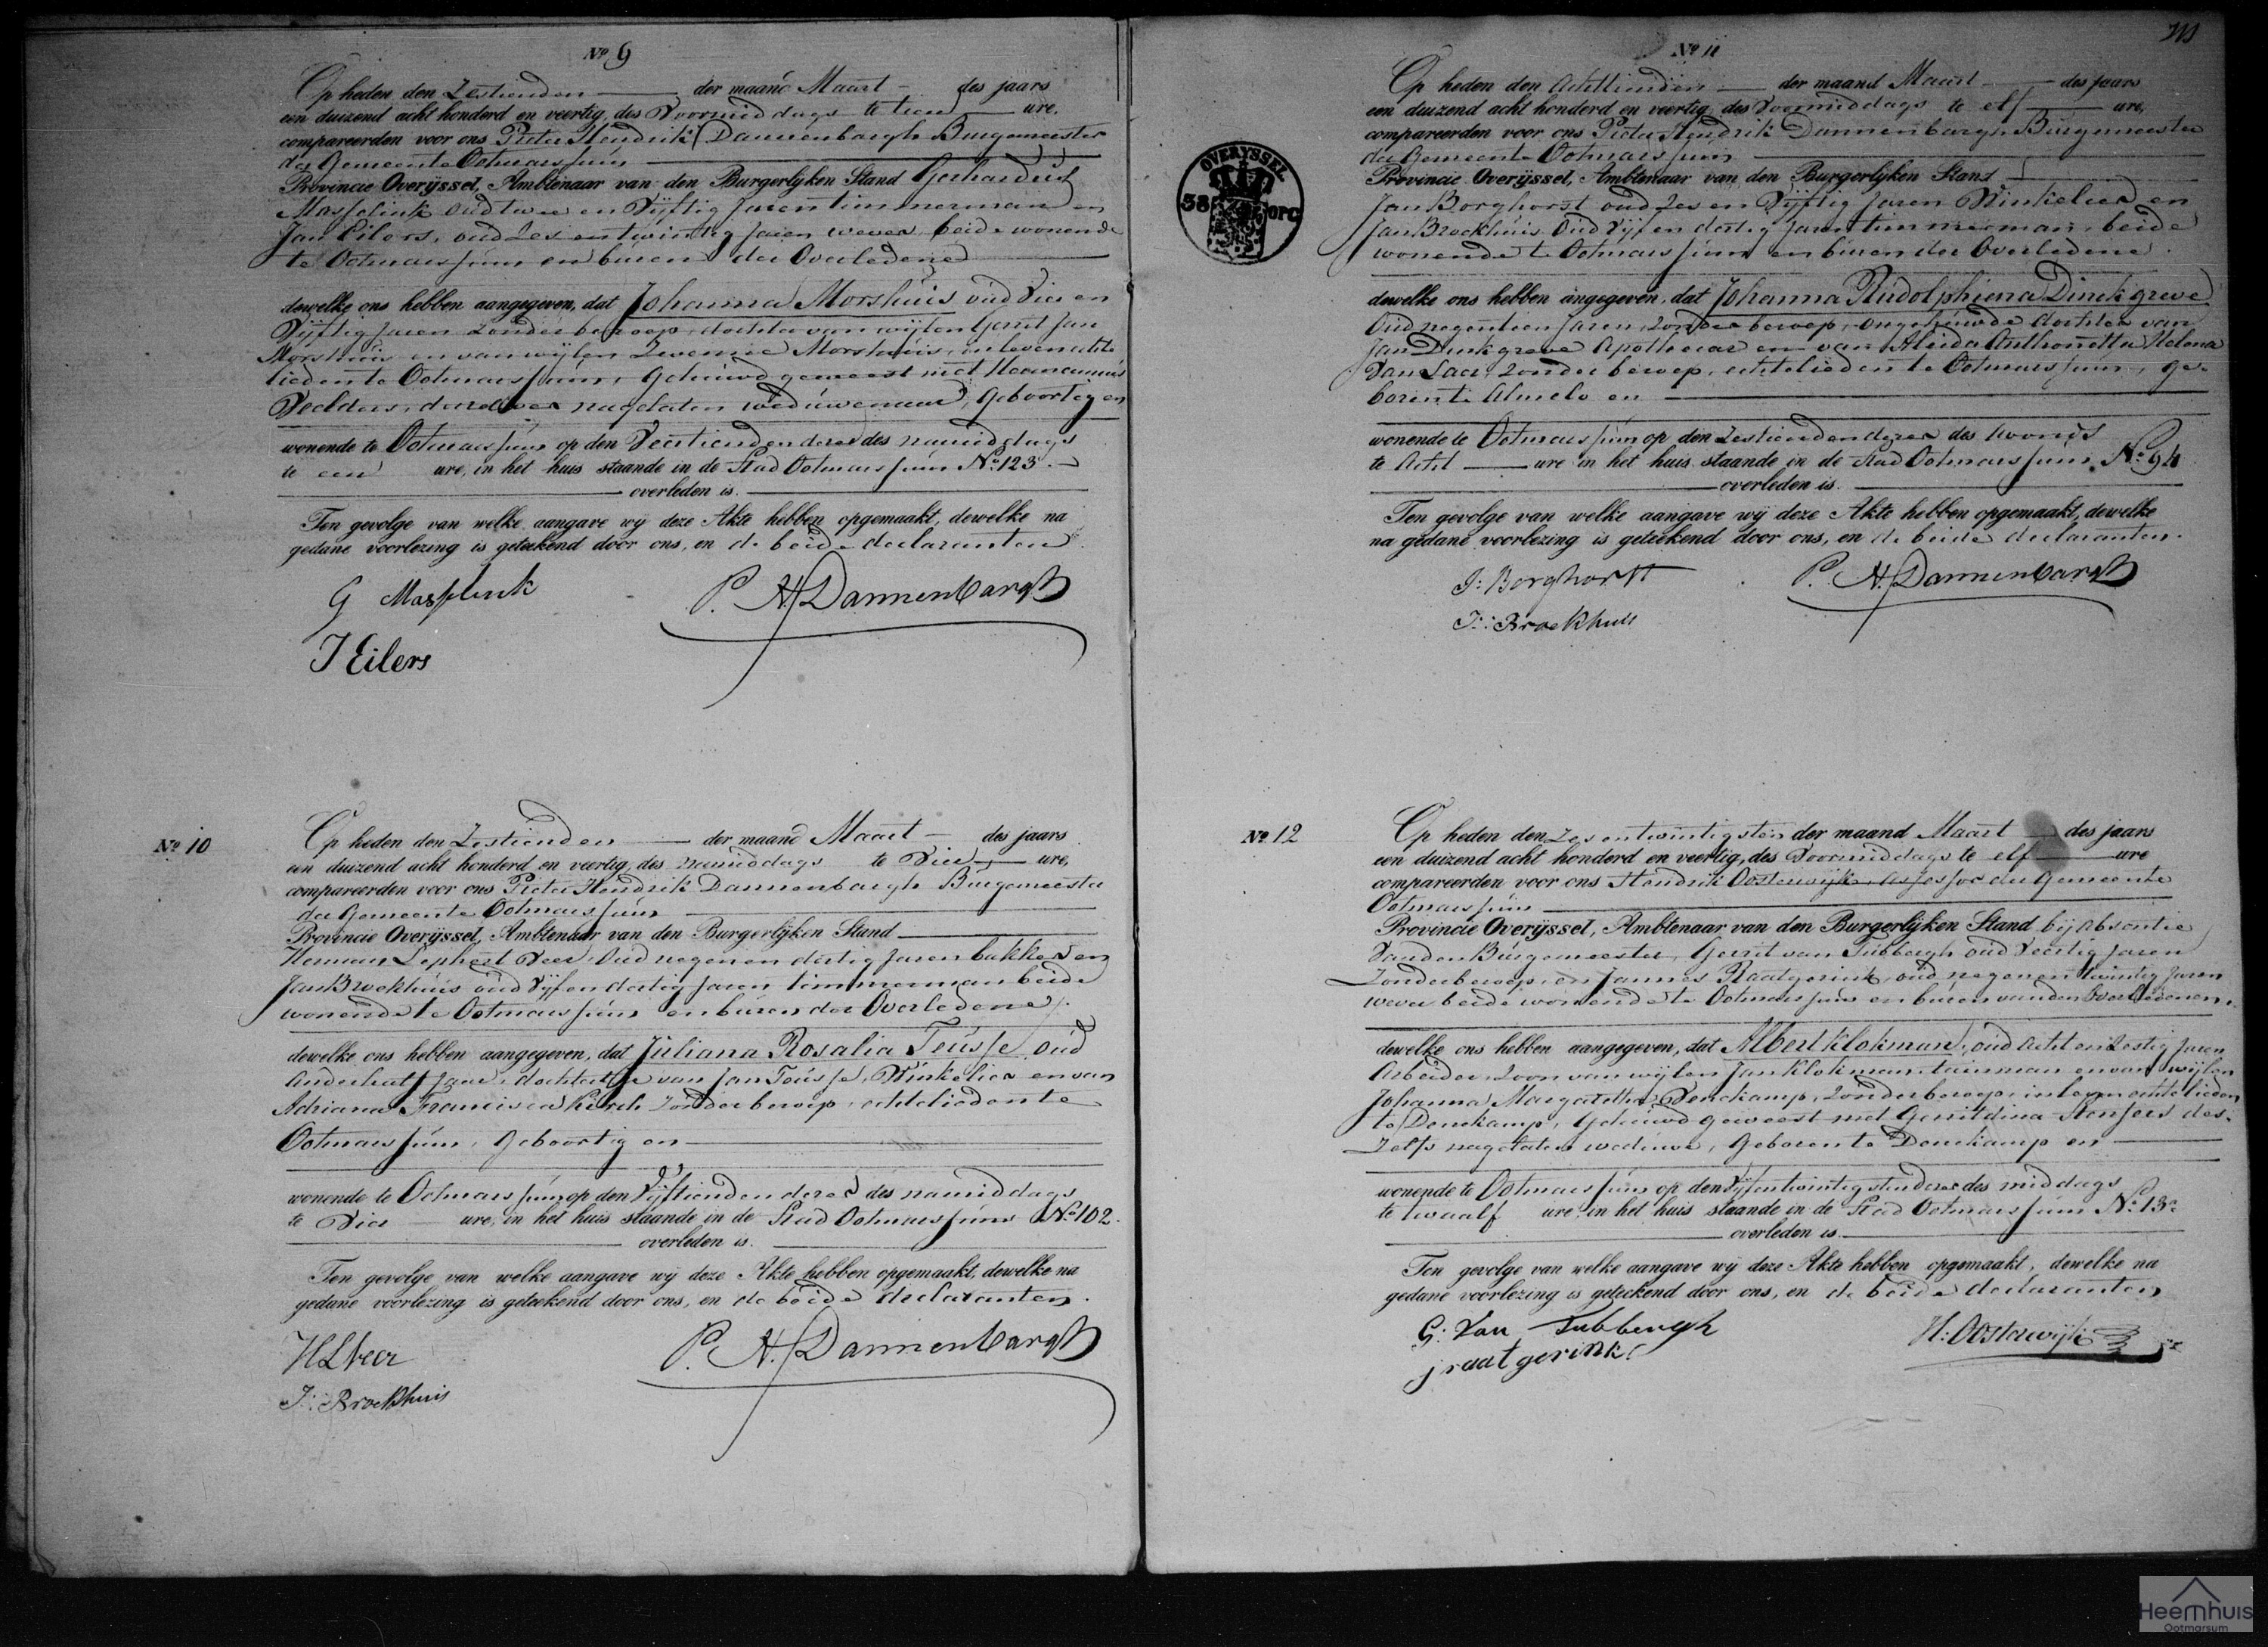 No 9
Op heden den Zestienden der maand Maart des jaars
een duizend acht honderd en veertig, des Voormiddags te tien ure,
compareerden voor ons Pieter Hendrik Dannenbargh Burgemeester
der Gemeente Ootmarssum
Provincie Overijssel, Ambtenaar van den Burgerlyken Stand Gerhardus
Masselink oud twee en Vijftig Jaren timmerman en
Jan Eilers, oud Zes en twintig Jaren wever beide wonende
te Ootmarssum en buren der Overledene
dewelke ons hebben aangegeven, dat Johanna Morshuis oud Vier en
Vijftig Jaren Zonder beroep, dochter van wijlen Gerrit Jan
Morshuis en van wijlen Morshuis, in leven echte
lieden te Ootmarssum, Gehuwd geweest met Hermannus
Veelders, derzelver nagelaten weduwenaar, Geboortig en
wonende te Ootmarssum op den Veertienden dezer des namiddags
te een ure, in het huis staande in de Stad Ootmarssum No 123
overleden is.
Ten gevolge van welke aangave wy deze Akte hebben opgemaakt, dewelke na
gedane voorlezing is geteekend door ons, en de beide declaranten.
G Masselink P. H. Dannenbargh
J Eilers
No 10
Op heden den Zestienden der maand Maart des jaars
een duizend acht honderd en veertig, des namiddags te Vier ure,
compareerden voor ons Pieter Hendrik Dannenbargh Burgemeester
der Gemeente Ootmarssum
Provincie Overijssel, Ambtenaar van den Burgerlyken Stand
Herman Veer, Oud negen en dertig Jaren bakker en
Jan Broekhuis oud Vijf en dertig Jaren timmerman beide
wonende te Ootmarssum en buren der Overledene.
dewelke ons hebben aangegeven, dat Juliana Rosalia Teusse, oud
Anderhalf Jaar, dochtertje van Jan Teusse, Winkelier en van
Adriana Francisca Zonder beroep, echtelieden te
Ootmarssum, Geboortig en
wonende te Ootmarssum op den Vijftienden dezer des namiddags
te Vier ure, in het huis staande in de Stad Ootmarssum No 102.
overleden is.
Ten gevolge van welke aangave wij deze Akte hebben opgemaakt, dewelke na
gedane voorlezing is geteekend door ons, en de beide declaranten.
HL Veer P. H. Dannenbargh
J: Broekhuis
No 11
Op heden den Achttienden der maand Maart des jaars
een duizend acht honderd en veertig, des Voormiddags te elf ure,
compareerden voor ons Pieter Hendrik Dannenbargh Burgemeester
der Gemeente Ootmarssum
OVERYSSEL.
38 OPC
Provincie Overijssel, Ambtenaar van den Burgerlyken Stand
Jan Borghorst oud Zes en Vijftig Jaren Winkelier en
Jan Broekhuis Oud Vijf en dertig Jaren timmerman, beide
wonende te Ootmarssum en buren der Overledene.
dewelke ons hebben angegeven, dat Johanna Rudolphiena Dinckgreve
Oud negentien Jaren, Zonder beroep, ongehuwde dochter van
Jan Dinckgreve Apothecar en van Aleida Anthonetta Helena
Van Laer, Zonder beroep, echtelieden te Ootmarssum, ge-
boren te Almelo en
wonende te Ootmarssum op den Zestienden dezer des avonds
te Acht ure in het huis staande in de Stad Ootmarssum No 94
overleden is.
Ten gevolge van welke aangave wy deze Akte hebben opgemaakt, dewelke
na gedane voorlezing is geteekend door ons, en de beide declaranten.
J: Borghorst P. H. Dannenbargh
J: Broekhuis
No 12
Op heden den Zes en twintigsten der maand Maart des jaars
een duizend acht honderd en veertig, des Voormiddags te elf ure
compareerden voor ons Hendrik Oosterwijk, Assessor der Gemeente
Ootmarssum
Provincie Overijssel, Ambtenaar van den Burgerlyken Stand bij Absentie
Van den Burgemeester, Gerrit van Tubbergh oud Veertig Jaren
Zonder beroep, en Jannes Raatgerink, oud negen en twintig Jaren
wever beide wonende te Ootmarssum en buren van den Overledenen,
dewelke ons hebben aangegeven, dat Albert Klokman, oud Acht en Zestig Jaren
Arbeider, Zoon van wijlen Jan Klokman, en van wijlen
Johanna Margaretha Denekamp, Zonder beroep, in leven echtelieden
te Denekamp, Gehuwd geweest met Gerritdina des-
Zelfs nagelaten weduwe, Geboren te Denekamp en
wonende te Ootmarssum op den Vijfentwintigsten dezer des middags
te twaalf ure in het huis staande in de Stad Ootmarssum
overleden is.
Ten gevolge van welke aangave wij deze Akte hebben opgemaakt, dewelke na
gedane voorlezing is geteekend door ons, en de beide declaranten
G: Van Tubbergh H: Oosterwijk
j raatgerink
Heemhuis
Ootmarsum